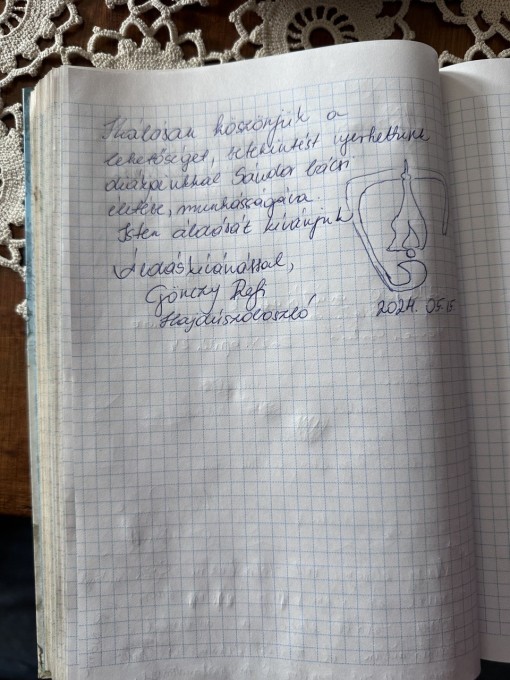 Hálásan köszönjük a
lehetőséget, betekintést nyerhettünk
diákjainkkal Sándor bácsi
életébe, munkásságába.
Isten áldását kívánjuk
Áldáskívánással,
Gönczy Refi
Hajdúszoboszló
2024. 05.